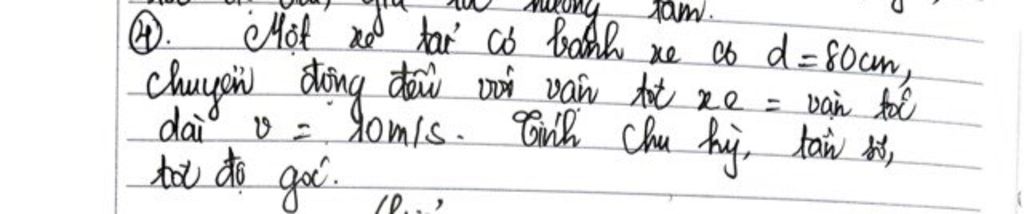 hướng tâm.
④. Một xe tải có bánh xe có d = 80cm,
chuyển động đều với vận tốc xe = vận tốc
dài v = 10m/s. Tính chu kỳ, tần số,
tốc độ góc.